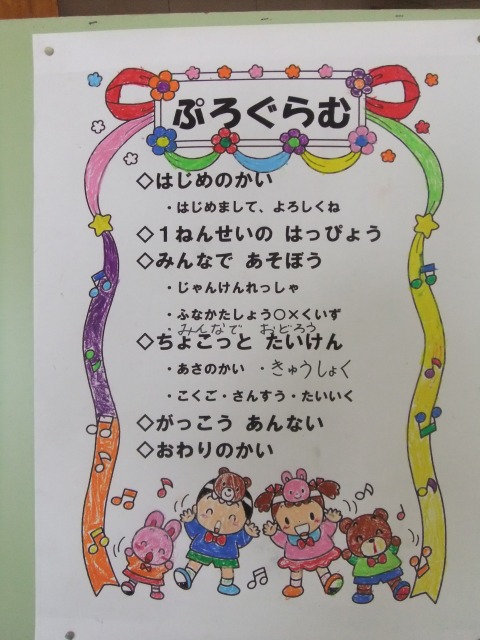 ぷろぐらむ
◇はじめのかい
・はじめまして、よろしくね
◇1ねんせいの はっぴょう
◇みんなで あそぼう
・じゃんけんれっしゃ
・ふなかたしょう○×くいず
みんなで おどろう
◇ちょこっと たいけん
・あさのかい ・きゅうしょく
・こくご・さんすう・たいいく
◇がっこう あんない
◇おわりのかい